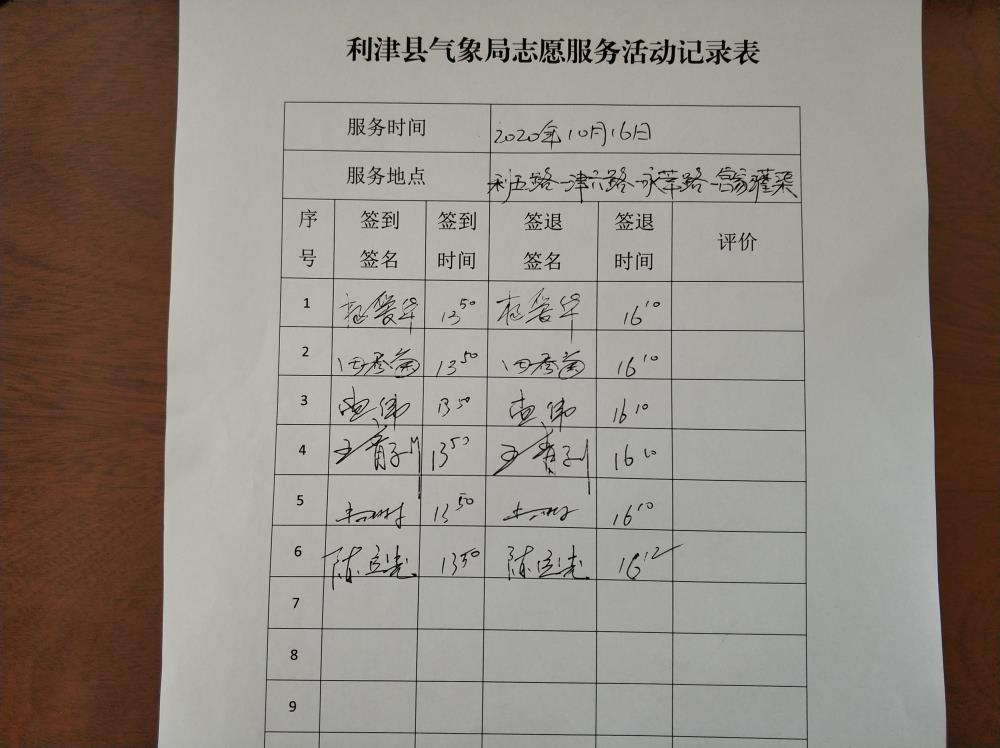 利津县气象局志愿服务活动记录表
服务时间 2020年10月16日
服务地点 利五路-津六路-永莘路-灌渠
序号 签到签名 签到时间 签退签名 签退时间 评价
1 13 50 16 10
2 田秀菊 13 50 田秀菊 16 10
3 13 50 16 10
4 13 50 16 10
5 13 50 16 10
6 陈立 13 50 陈立 16 12
7
8
9